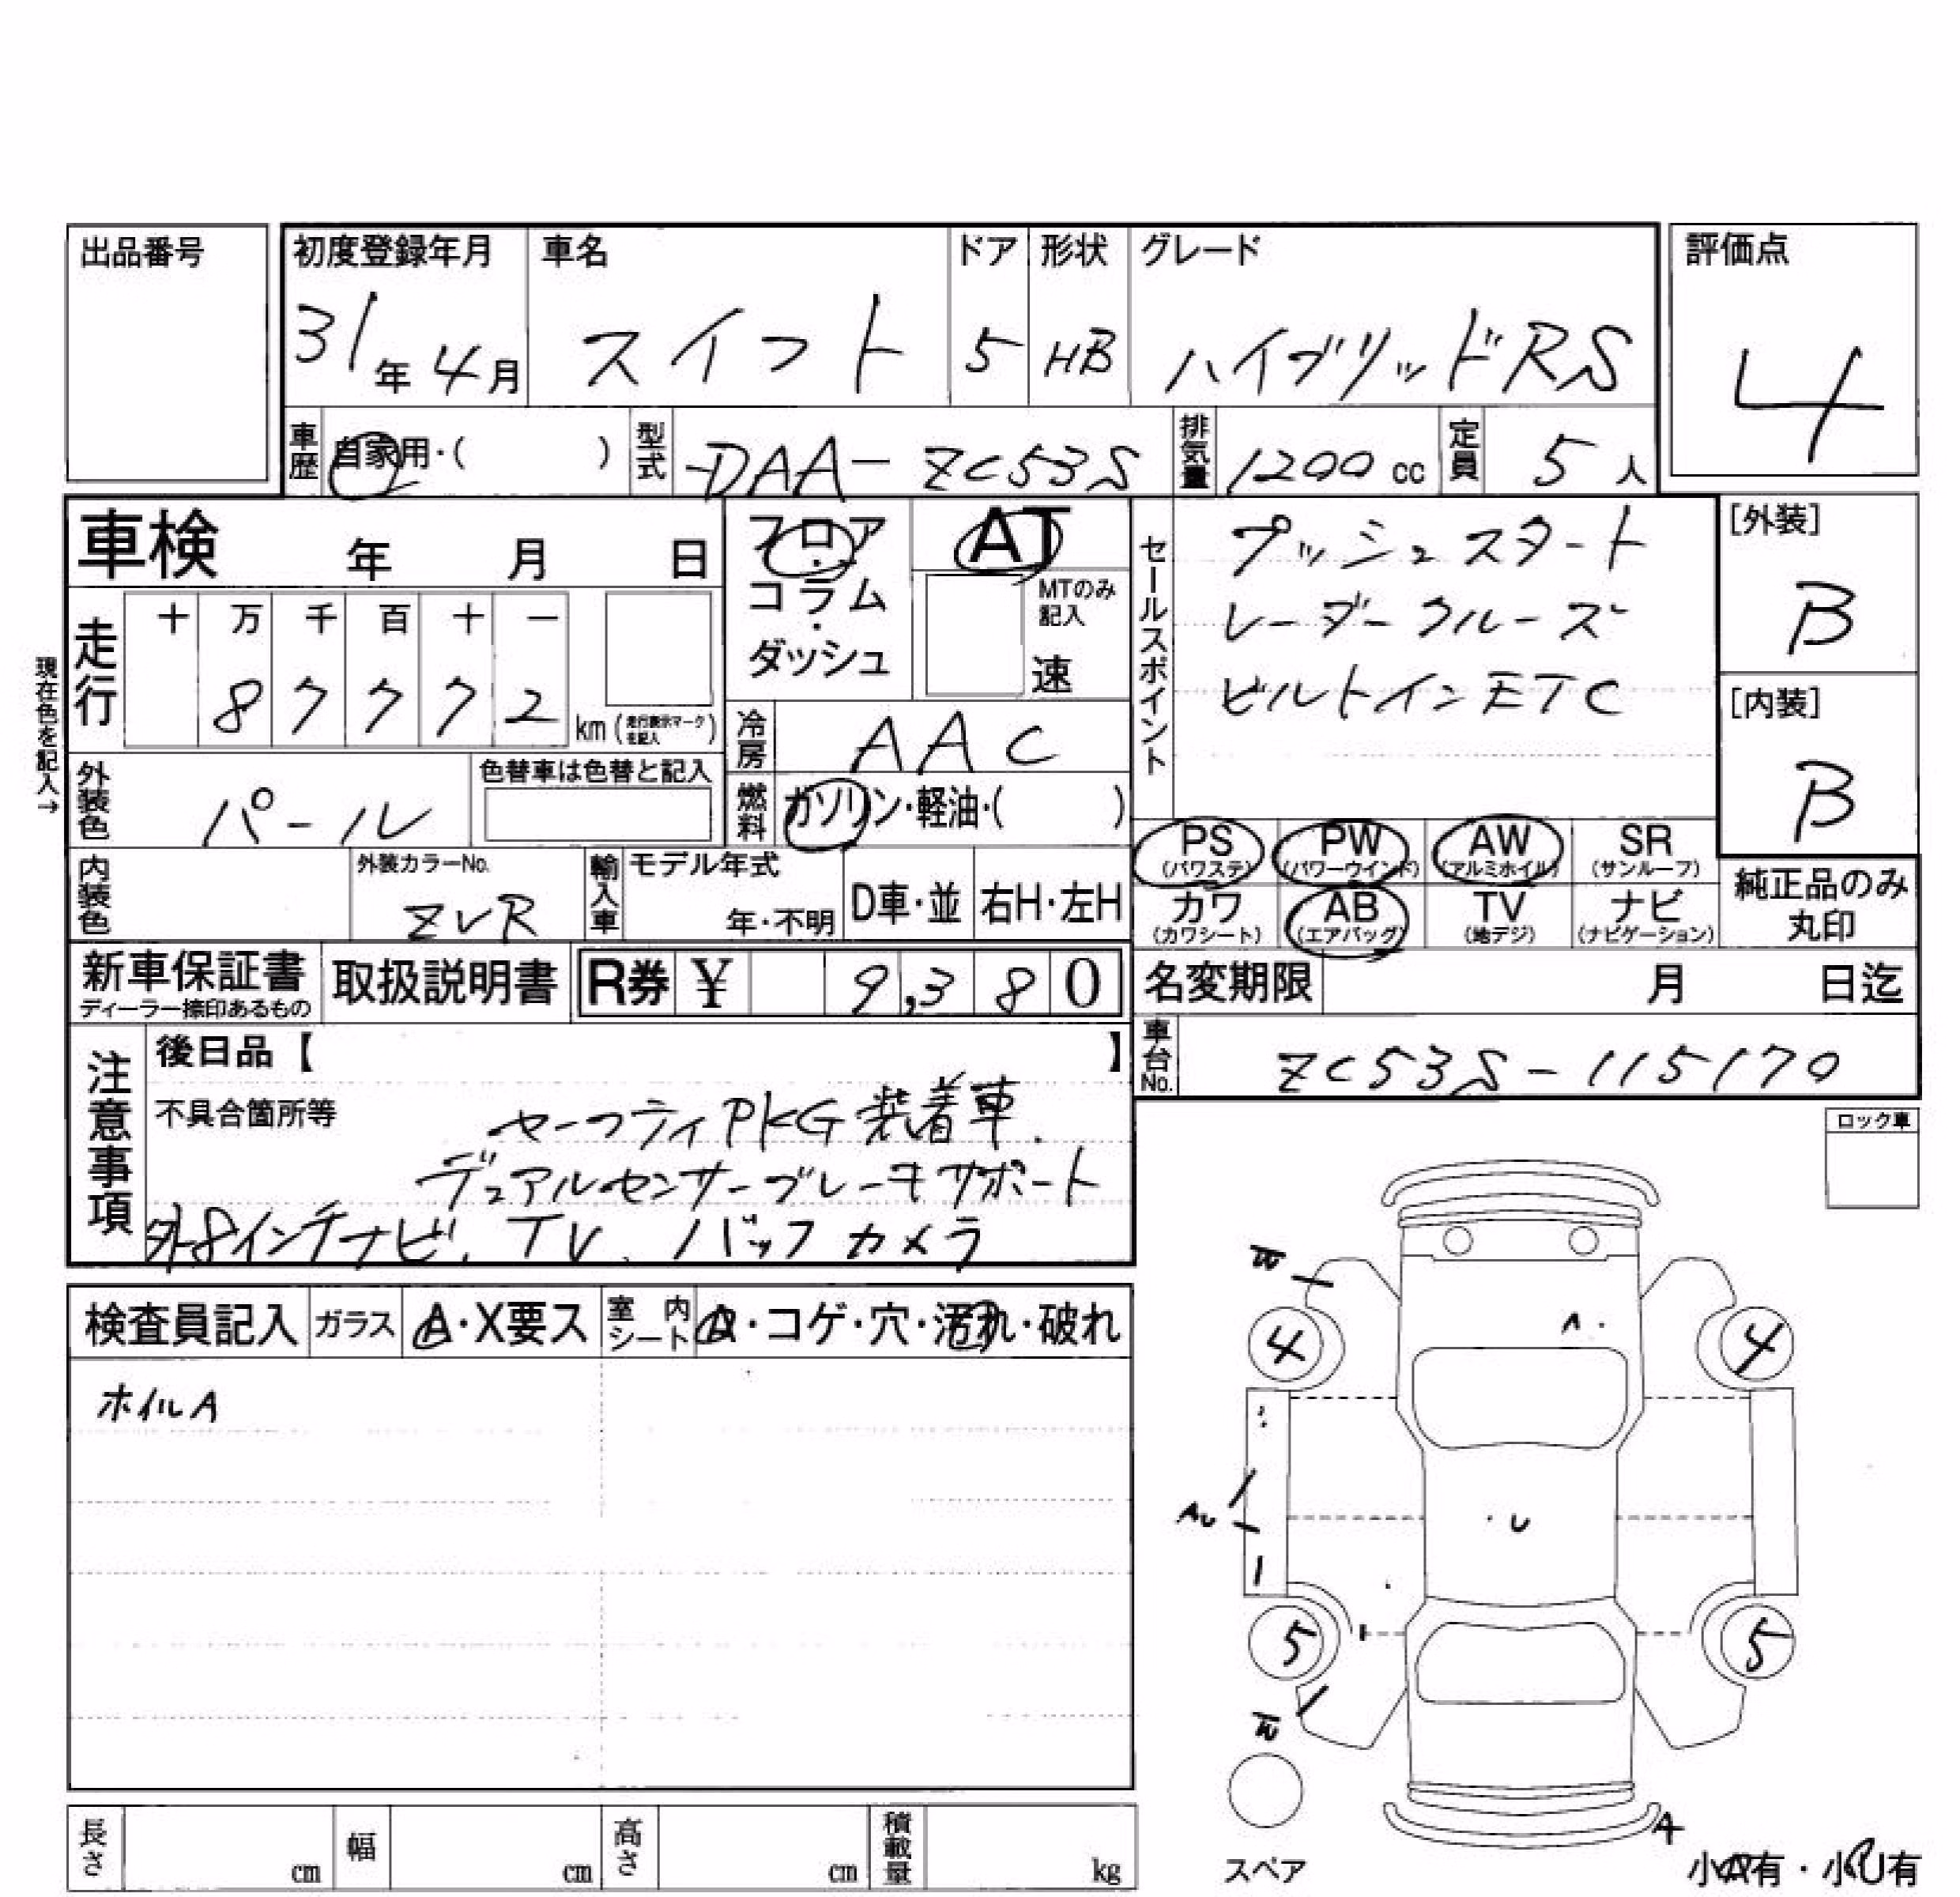 出品番号
初度登録年月 車名 ドア 形状 グレード 評価点
31年4月 スイフト 5 HB ハイブリッドRS 4
車歴 自家用・( ) 型式 DAA-ZC53S 排気量 1200cc 定員 5人
車検 年 月 日
フロア・コラム・ダッシュ AT
MTのみ記入 速
セールスポイント
プッシュスタート
レーダークルーズ
ビルトインETC
[外装]
B
[内装]
B
現在色を記入→
走行 十 万 千 百 十 一
8 7 7 7 2 km (走行表示マークを記入)
冷房 AAC
外装色 パール 色替車は色替と記入
燃料 ガソリン・軽油・( )
PS (パワステ) PW (パワーウインド) AW (アルミホイル) SR (サンルーフ)
カワ (カワシート) AB (エアバッグ) TV (地デジ) ナビ (ナビゲーション)
純正品のみ丸印
内装色 外装カラーNo. ZVR 輸入車 モデル年式 年・不明 D車・並 右H・左H
新車保証書 ディーラー捺印あるもの 取扱説明書 R券 ¥ 9,380
名変期限 月 日迄
車台No. ZC53S-115170
注意事項
後日品【 】
不具合箇所等 セーフティPKG装着車.
デュアルセンサーブレーキサポート
外8インチナビ、TV、バックカメラ
ロック車
検査員記入 ガラス A・X要ス 室内シート A・コゲ・穴・汚れ・破れ
ホイルA
4 4
A
AU
U
5 5
A
スペア
小A有・小U有
長さ cm 幅 cm 高さ cm 積載量 kg